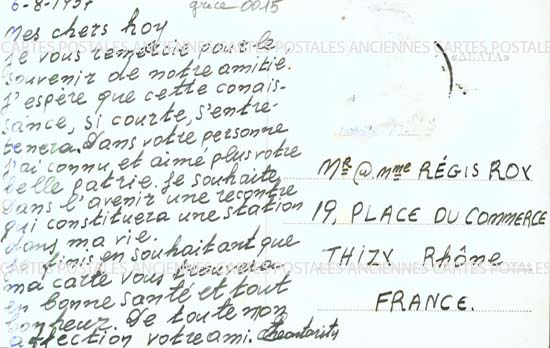 6-8-1957
grece 0015
Mes chers hoy
Je vous remercie pour le
souvenir de notre amitie.
J'espère que cette conais-
sance, si courte, s'entre-
tenera. Dans votre personne
j'ai connu et aimé plus votre
belle patrie. Je souhaite
Dans l'avenir une recontre
qui constituera une station
dans ma vie.
Je finis en souhaitant que
ma carte vous trouvera
en bonne santé et tout
bonheur. De toute mon
affection votre ami.
CARTES POSTALES ANCIENNES CARTES POSTALES ANCIENNES CARTES POSTALES
«ΔΕΛΤΑ»
MR @ mme RÉGIS ROY
19, PLACE DU COMMERCE
THIZY Rhône
FRANCE.